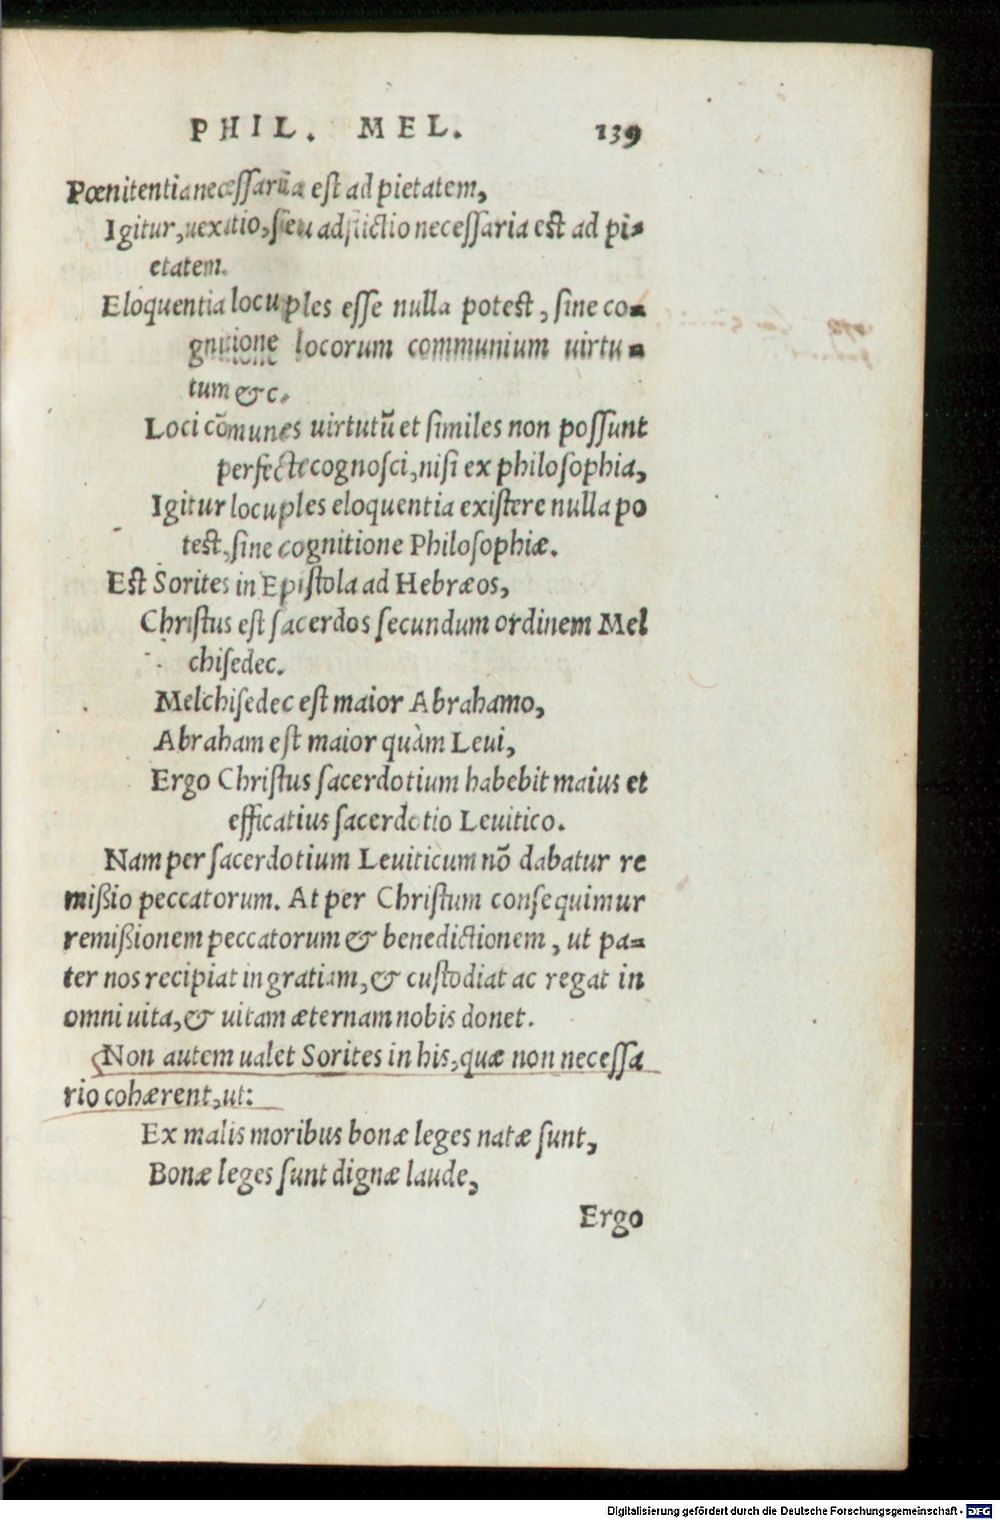 PHIL. MEL. 139
Pœnitentia necessaria est ad pietatem,
Igitur, uexatio, seu adflictio necessaria est ad pi-
etatem.
Eloquentia locuples esse nulla potest, sine co-
gnitione locorum communium uirtu-
tum &c.
Loci cōmunes uirtutū et similes non possunt
perfecte cognosci, nisi ex philosophia,
Igitur locuples eloquentia existere nulla po
test, sine cognitione Philosophiæ.
Est Sorites in Epistola ad Hebræos,
Christus est sacerdos secundum ordinem Mel
chisedec.
Melchisedec est maior Abrahamo,
Abraham est maior quàm Leui,
Ergo Christus sacerdotium habebit maius et
efficatius sacerdotio Leuitico.
Nam per sacerdotium Leuiticum nō dabatur re
mißio peccatorum. At per Christum consequimur
remißionem peccatorum & benedictionem, ut pa-
ter nos recipiat in gratiam, & custodiat ac regat in
omni uita, & uitam æternam nobis donet.
Non autem ualet Sorites in his, quæ non necessa
rio cohærent, ut:
Ex malis moribus bonæ leges natæ sunt,
Bonæ leges sunt dignæ laude,
Ergo
Digitalisierung gefördert durch die Deutsche Forschungsgemeinschaft - DFG